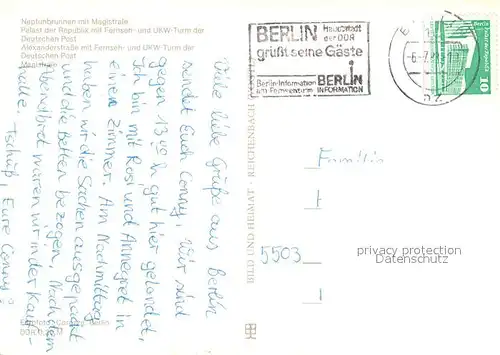 Neptunbrunnen mit Magistrale
Palast der Republik mit Fernseh- und UKW-Turm der
Deutschen Post
Alexanderstraße mit Fernseh- und UKW-Turm der
Deutschen Post
Viele liebe Grüße aus Berlin
sendet Euch Conny. Wir sind
gegen 13 h gut hier gelandet.
Ich bin mit Rosi und Annegret in
einem Zimmer. Am Nachmittag
haben wir die Sachen ausgepackt
und die Betten bezogen. Nach dem
Abendbrot waren wir in der Kauf-
halle. Tschüß, Eure Conny!
BILD UND HEIMAT REICHENBACH
BERLIN Hauptstadt
der DDR
grüßt seine Gäste
Berlin-Information
am Fernsehturm
BERLIN
INFORMATION
10
Familie
5503
privacy protection
Datenschutz